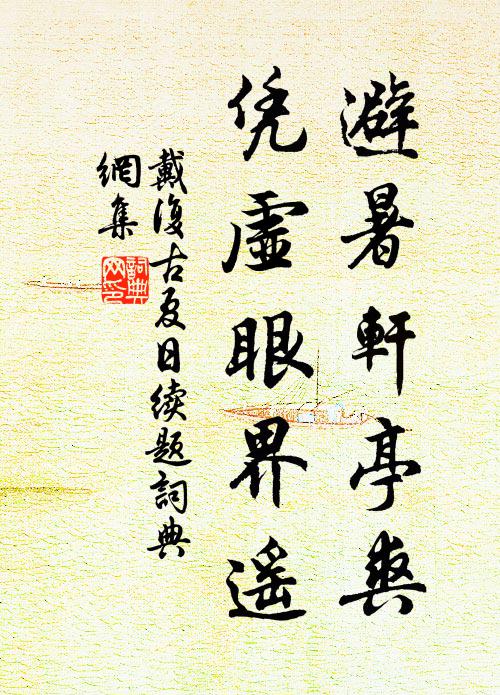 避暑軒亭爽
凭虛眼界遥
戴復古夏日续题詞典
網集
詞典
网印